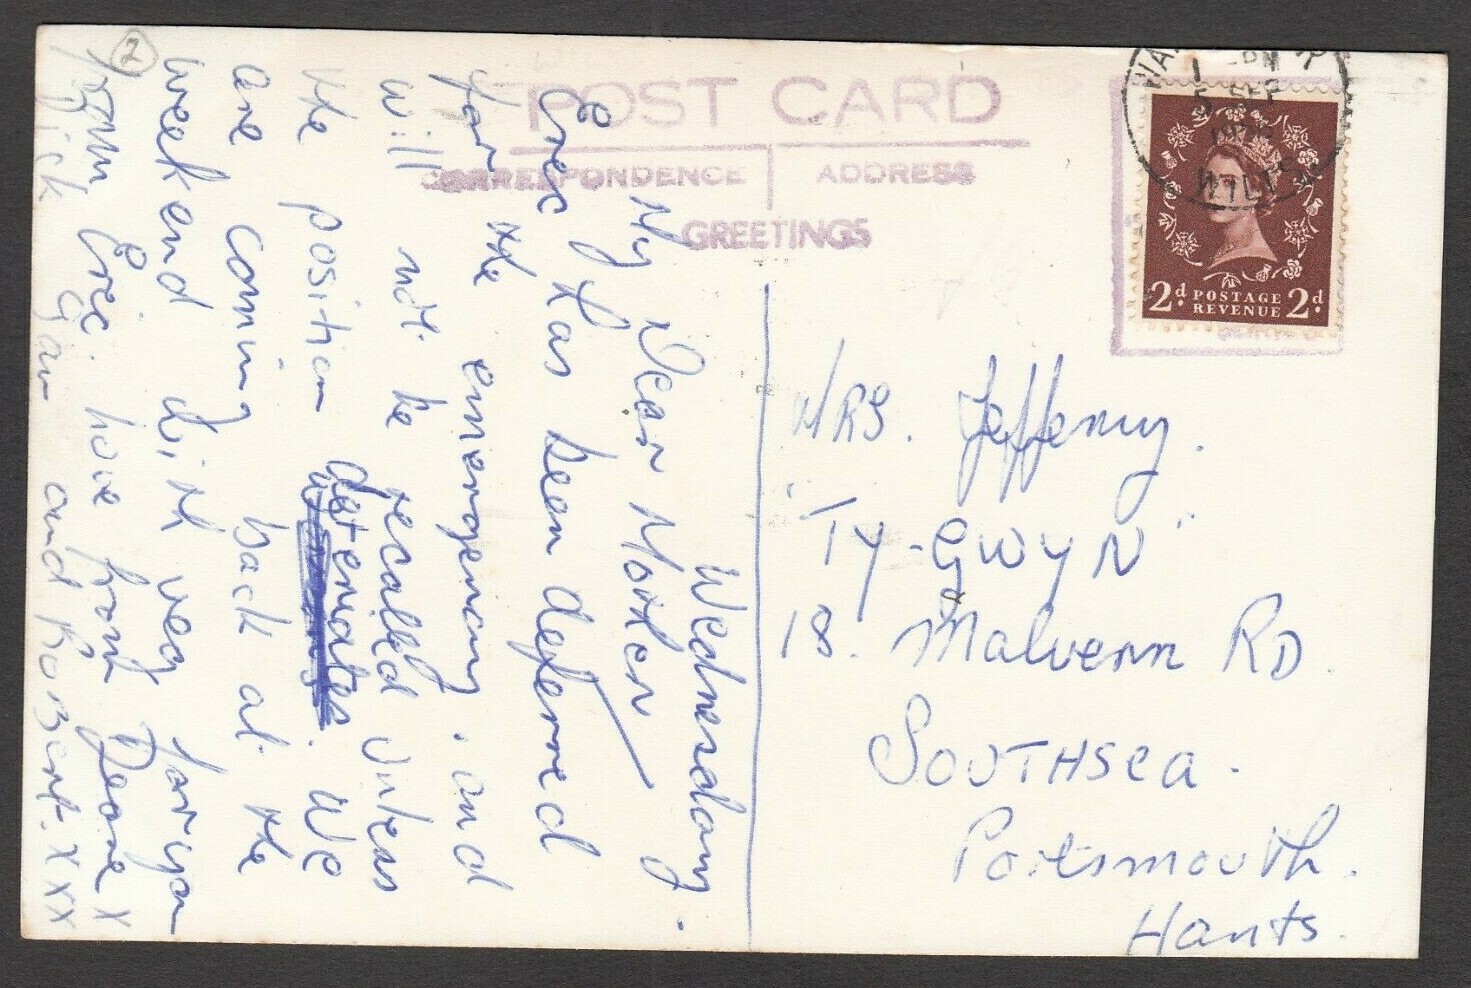 POST CARD
CORRESPONDENCE
ADDRESS
GREETINGS
5 SEP
WILTS
2d POSTAGE 2d
REVENUE
2
Wednesday.
My Dear Mother
Eric has been deferred
for the emergency. and
will not be recalled unless
the position deteriates. We
are coming back at the
weekend. With very
from Eric. love from Jeane X
Dick Gav and Robert. X X X
MRS. Jefferny.
"TY-GWYN"
18. Malvern RD.
SOUTHSEA.
Portsmouth.
Hants.